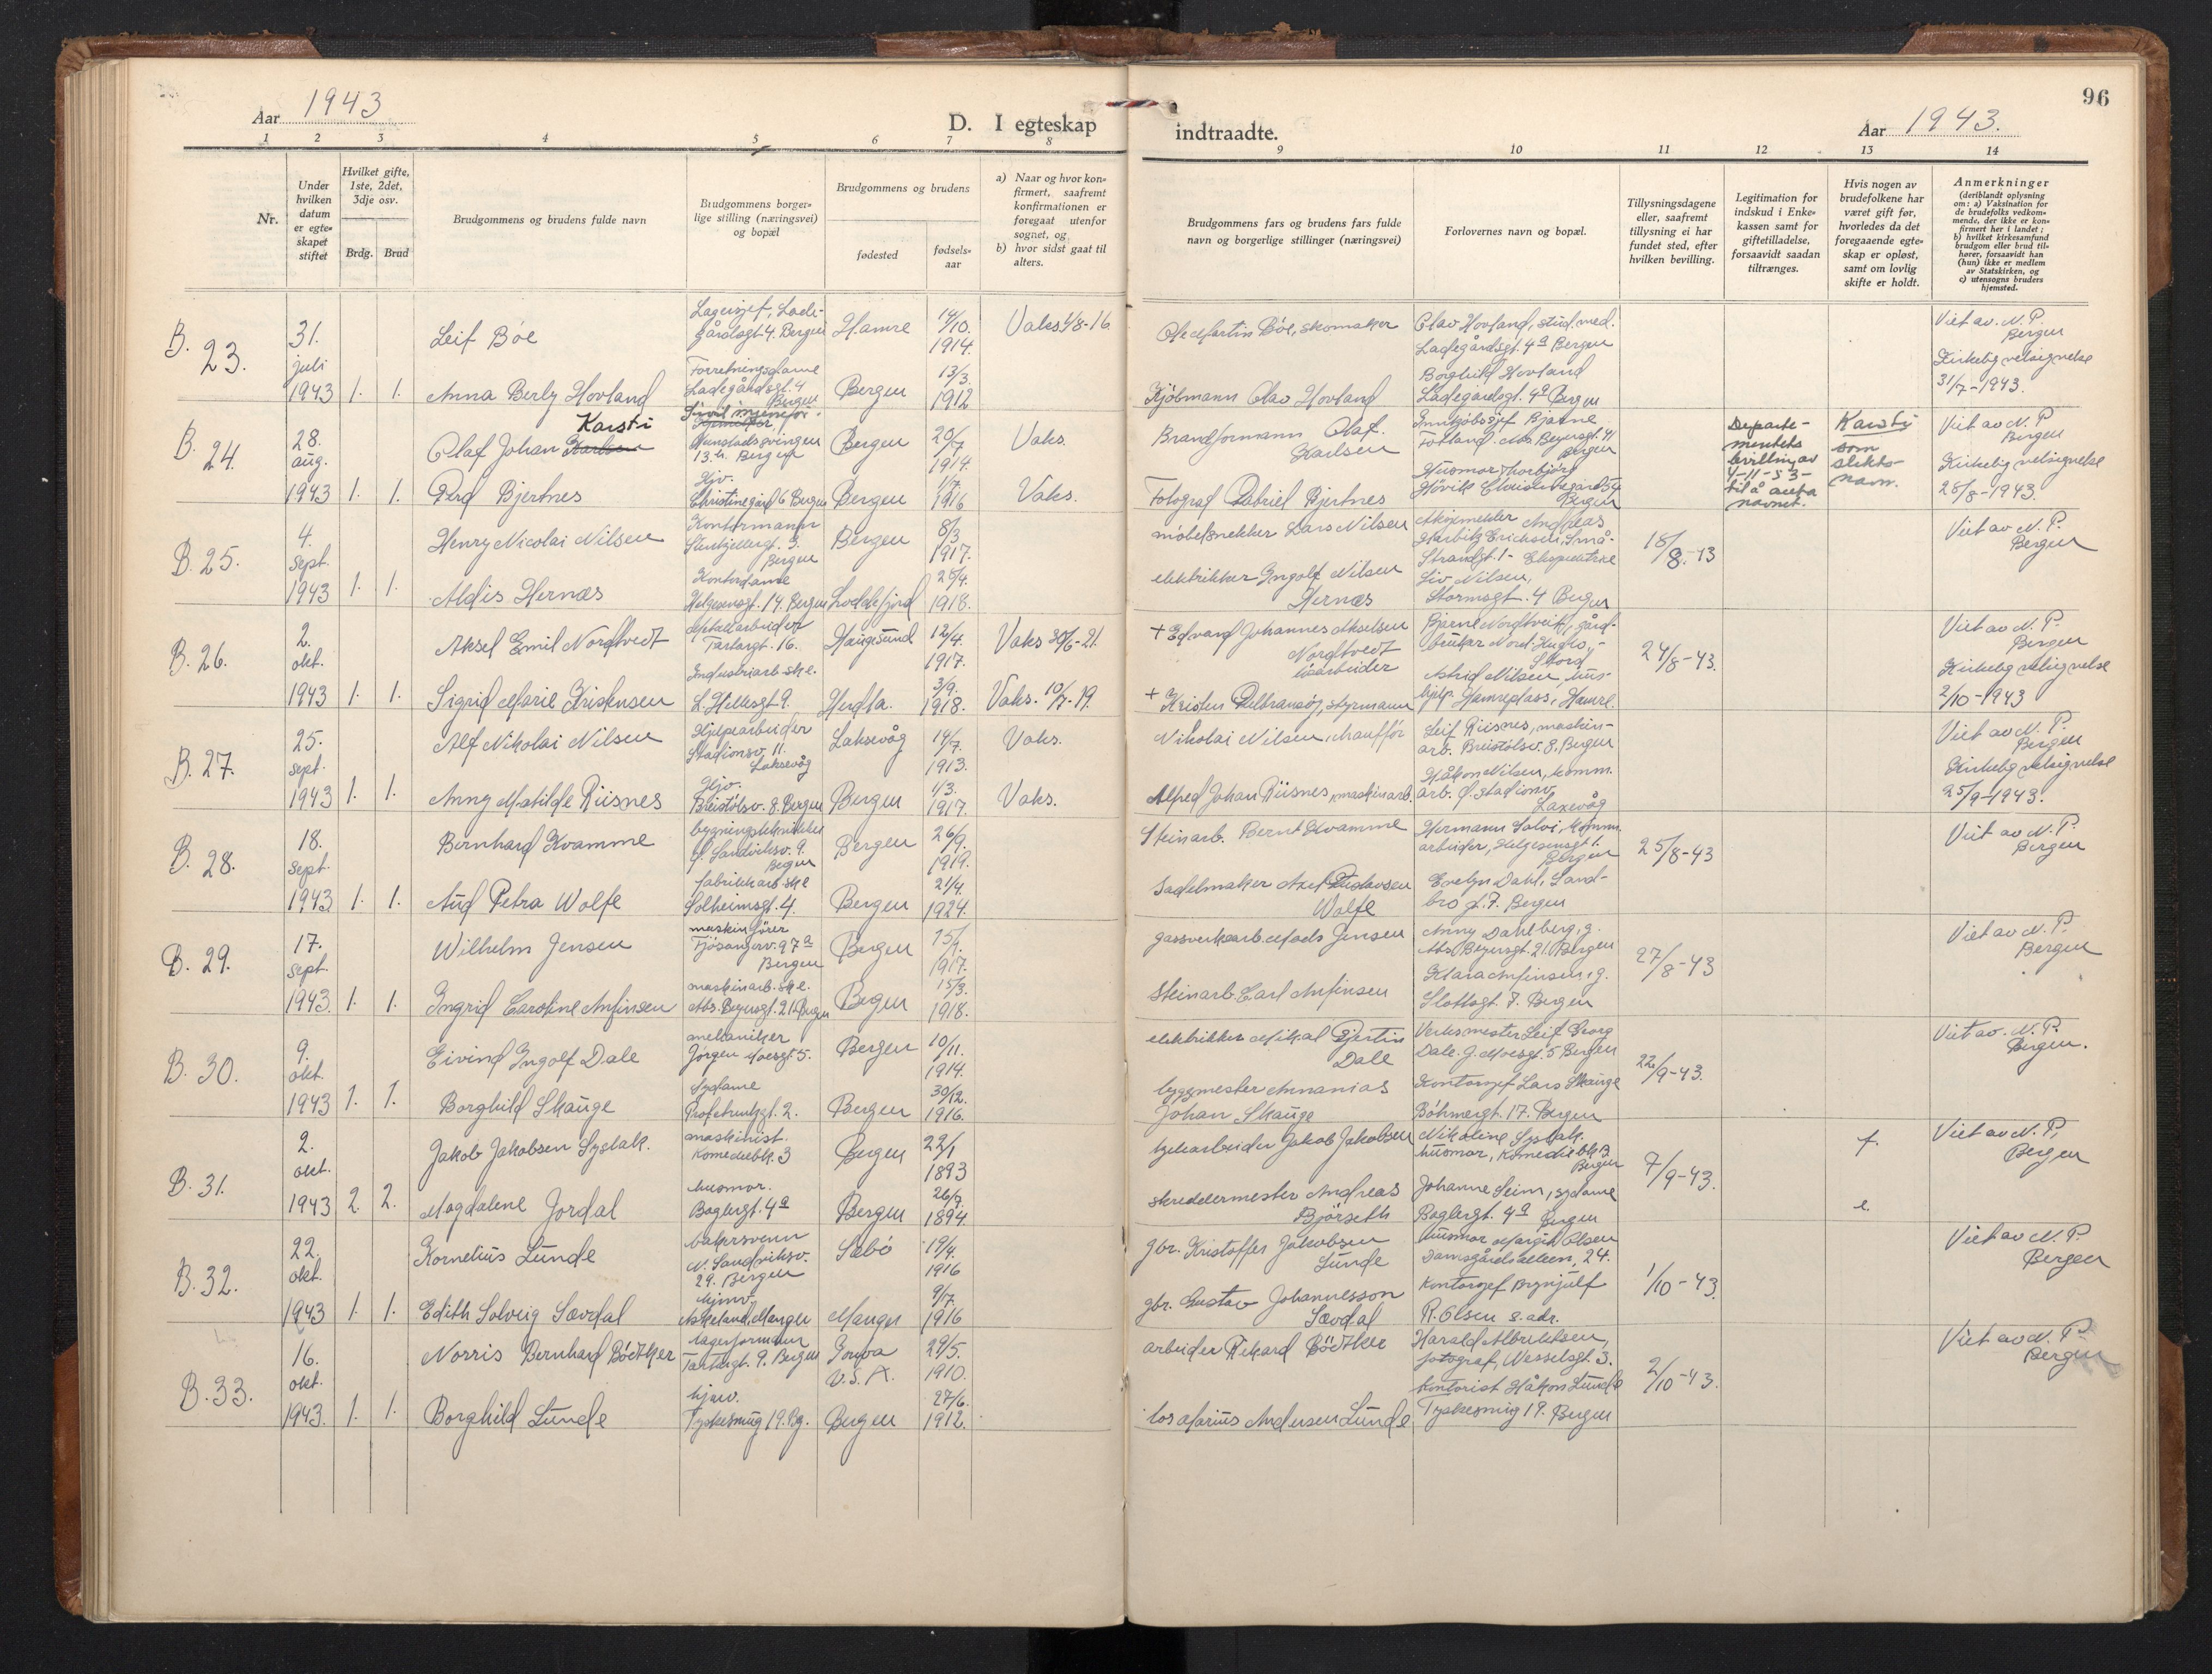 96
Aar 1943
D. I egteskap
indtraadte.
Aar 1943.
1 2 3 4 5 6 7 8 9 10 11 12 13 14
Nr.
Under hvilken datum er egteskapet stiftet
Hvilket gifte, 1ste, 2det, 3dje osv.
Brdg. Brud
Brudgommens og brudens fulde navn
Brudgommens borgerlige stilling (næringsvei) og bopæl
Brudgommens og brudens
fødested
fødselsaar
a) Naar og hvor konfirmert, saafremt konfirmationen er foregaat utenfor sognet, og
b) hvor sidst gaat til alters.
Brudgommens fars og brudens fars fulde navn og borgerlige stillinger (næringsvei)
Forlovernes navn og bopæl.
Tillysningsdagene eller, saafremt tillysning ei har fundet sted, efter hvilken bevilling.
Legitimation for indskud i Enkekassen samt for giftetilladelse, forsaavidt saadan tiltrænges.
Hvis nogen av brudefolkene har været gift før, hvorledes da det foregaaende egteskap er opløst, samt om lovlig skifte er holdt.
Anmerkninger
(deriblandt oplysning om: a) Vaksination for de brudefolks vedkommende, der ikke er konfirmert her i landet; b) hvilket kirkesamfund brudgom eller brud tilhører, forsaavidt han (hun) ikke er medlem av Statskirken, og c) utensogns bruders hjemsted.
B. 23.
31. juli 1943 1. 1.
Leif Bøe
Lagersjef, Ladegårdsgt. 4 Bergen
Hamre
14/10. 1914.
Vaks 4/8-16
Ole Martin Bøe, skomaker
Olav Hovland, stud. med.
Ladegårdsgt. 4a Bergen
Viet av. N. P. Bergen
Anna Berly Hovland
Forretningsdame
Ladegårdsgt. 4 Bergen
Bergen
13/3. 1912
Kjöbmann Olav Hovland
Borghild Hovland
Ladegårdsgt. 4a Bergen
Kirkelig velsignelse
31/7-1943.
B. 24.
28. aug. 1943 1. 1.
Karsti
Olaf Johan Karlsen
13. Bergen
Bergen
20/7 1914.
Vaks.
Brandformann Olaf. Karlsen
Innkjöbssjef Bjarne
Departementets bevilling av 4-11-53- til å anta navnet.
Karsti som slektsnavn.
Viet av N. P Bergen
Gerd Bjertnes
Hjv.
Christinegård 6 Bergen
Bergen
1/7. 1916
Vaks.
Fotograf Gabriel Bjertnes
Husmor Thorbjörg
Bergen
Kirkelig velsignelse
28/8-1943.
B. 25.
4. sept. 1943 1. 1.
Henry Nicolai Nilsen
Kontormann
Bergen
Bergen
8/3 1917.
möbelsnekker Lars Nilsen
18/8.-43
Viet av N. P. Bergen
Aldis Hernæs
Kontordame
Helgesensgt. 14. Bergen
Loddefjord
25/4. 1918.
elektrikker Ingolf Nilsen
Hernæs
Liv Nilsen,
Stormsgt. 4 Bergen
B. 26.
2. okt. 1943 1. 1.
Aksel Emil Nordtvedt
Metallarbeider
Tartargt. 16.
Haugesund
12/4. 1917.
Vaks 30/6-21.
+ Edvard Johannes Akselsen
Nordtvedt
24/8-43.
Viet av N. P. Bergen
Sigrid Marie Kristensen
Industriarb.ske.
L. Hillesgt 9.
Herdla.
3/9. 1918.
Vaks. 10/7-19.
Astrid Nilsen, hushjelp. Hamreplass, Hamre.
Kirkelig velsignelse
2/10-1943
B. 27.
25. sept. 1943 1. 1.
Alf Nikolai Nilsen
Hjelpearbeider
Stadionsv. 11.
Laksevåg
Laksevåg
14/7. 1913.
Vaks.
Nikolai Nilsen, chauffór
Leif Riisnes, maskinarb. Breistölsv. 8, Bergen
Viet av N. P. Bergen
Anny Matilde Riisnes
Hjv.
Breistölsv. 8. Bergen
Bergen
1/3. 1917.
Vaks.
Alfred Johan Riisnes, maskinarb.
Håkon Nilsen, komm. arb.
Laxevåg
Kirkelig velsignelse
25/9-1943.
B. 28.
18. sept. 1943 1. 1.
Bernhard Kvamme
bygningstekniker
Bergen
Bergen
26/9. 1919.
Steinarb. Bernt Kvamme
Hermann Solvi, komm. arbeider, Helgesensgt 1. Bergen
25/8-43
Viet av N. P. Bergen
Aud Petra Wolfe
fabrikkarb.ske
Solheimsgt. 4.
Bergen
21/4. 1924.
Sadelmaker Axel Gustavsen
Wolfe
Evelyn Dahl, Sandbro gt. 7. Bergen
B. 29.
17. sept. 1943. 1. 1.
Wilhelm Jensen
maskinfører
Fjösangerv. 97a
Bergen
Bergen
1917.
gassverksarb. Mads Jensen
Anny Dahlberg, g.
Abs. Beyersgt. 21. Bergen
27/8-43
Viet av N. P. Bergen
Ingrid Caroline Anfinsen
maskinarb. ske.
Abs. Beyersgt. 21. Bergen
Bergen
15/3. 1918.
Steinarb. Carl Anfinsen
Klara Anfinsen, g.
Slottsgt. 7. Bergen
B. 30.
9. okt. 1943 1. 1.
Eivind Ingolf Dale
mekaniker
Jørgen Moesgt. 5.
Bergen
10/11. 1914.
elektrikker Mikal Bjertin
Dale
Verksmester Leif Georg
Dale. J. Moesgt. 5 Bergen
22/9-43.
Viet av. N. P. Bergen.
Borghild Skauge
Sydame
Bergen
30/12. 1916.
byggmester Annanias
Johan Skauge
Kontorsjef Lars Skauge
Böhmergt. 17. Bergen
B. 31.
2. okt. 1943 2. 2.
Jakob Jakobsen Systak.
maskinist.
Komediebk. 3
Bergen
22/1 1893
Jakob Jakobsen
Nikoline Systak.
husmor, Komediebk 3 Bergen
7/9-43.
f.
Viet av N. P. Bergen
Magdalene Jordal
husmor.
Baglergt. 4a
Bergen
26/7. 1894.
skreddermester Andreas
Björseth
Johanne Seim, sydame
Baglergt. 4a Bergen
e.
B. 32.
22. okt. 1943 1. 1.
Kornelius Lunde
bakersvenn
N. Sandviksv. 29. Bergen
Sæbö
19/4. 1916
gbr. Kristoffer Jakobsen
Lunde
husmor Margit Olsen
Damsgårdsalleen, 24.
1/10-43.
Viet av N. P. Bergen
Edith Solveig Sævdal
hjmv.
Askeland, Manger
Manger
9/7. 1916
gbr. Gustav Johannesson
Sævdal
Kontorsjef Brynjulf
R. Olsen s. adr.
B. 33.
16. okt. 1943. 1. 1.
Norris Bernhard Böedtker
lagerformann
Tartargt. 9. Bergen
Iowa
U. S. A.
29/5. 1910.
arbeider Rikard Böedtker
Harald Albriktsen,
fotograf, Wesselsgt. 3.
2/10-43.
Viet av N. P. Bergen
Borghild Lunde
hjmv.
Tyskesmug 19. Bg.
Bergen
27/6. 1912.
los Marius Andersen Lunde
Kontorist Håkon Lunde
Tyskesmug 19. Bergen